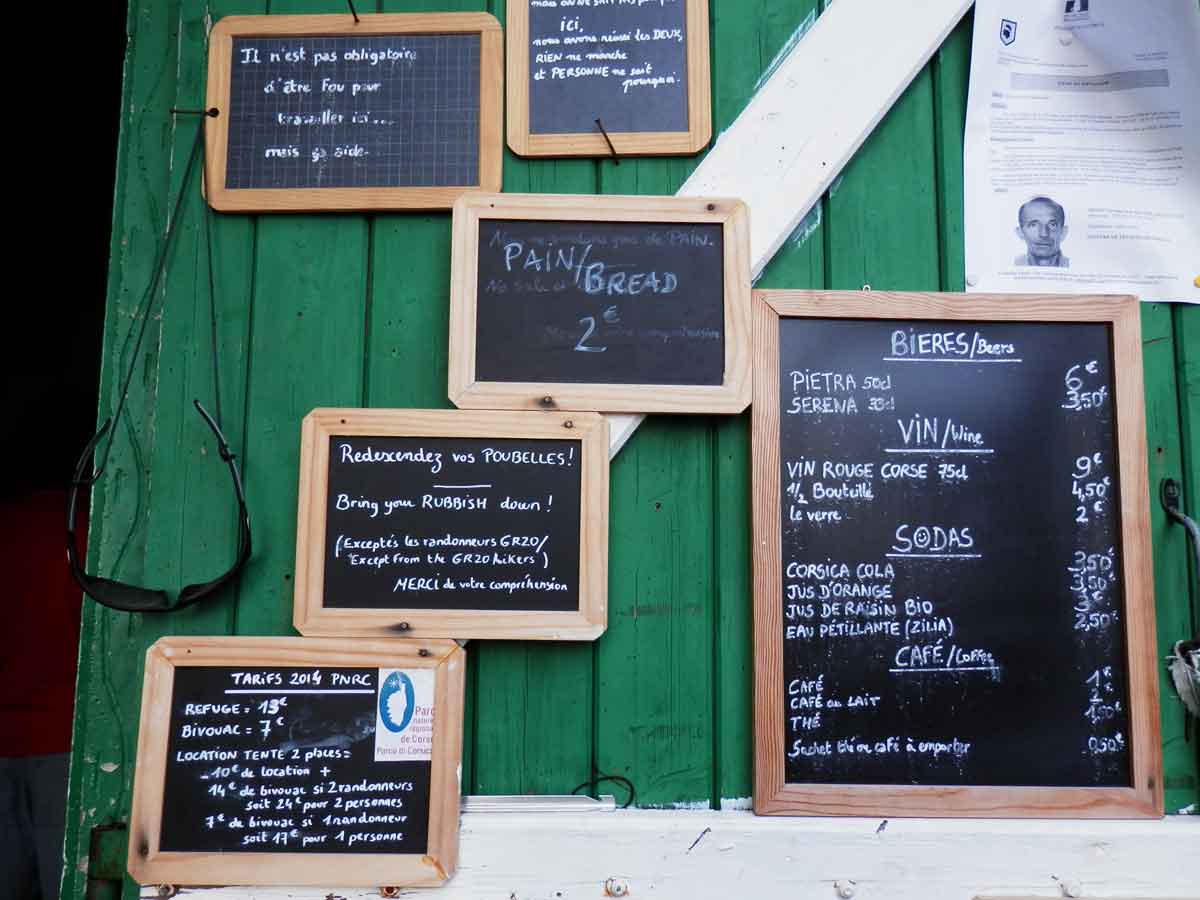 Il n'est pas obligatoire
d'être fou pour
travailler ici...
mais ça aide.
ici,
nous avons réussi les DEUX,
RIEN ne marche
et PERSONNE ne sait
pourquoi.
PAIN/
BREAD
2€
Redescendez vos POUBELLES!
Bring your RUBBISH down!
(Exceptés les randonneurs GR20/
Except from the GR20 hikers)
MERCI de votre compréhension
TARIFS 2014 PNRC
REFUGE = 13€
BIVOUAC = 7€
LOCATION TENTE 2 places =
- 10€ de location +
14€ de bivouac si 2 randonneurs
soit 24€ pour 2 personnes
7€ de bivouac si 1 randonneur
soit 17€ pour 1 personne
Parc
naturel
régional
de Corse
Parcu di Corsica
BIERES/Beers
PIETRA 50cl 6€
SERENA 33cl 3,50€
VIN/Wine
VIN ROUGE CORSE 75cl 9€
1/2 Bouteille 4,50€
le verre 2€
SODAS
CORSICA COLA 3,50
JUS D'ORANGE 3,50€
JUS DE RAISIN BIO 3€
EAU PÉTILLANTE (ZILIA) 2,50€
CAFÉ/Coffee
CAFÉ 1€
CAFÉ au LAIT 2€
THÉ 1,50€
Sachet thé ou café à emporter 0,50€